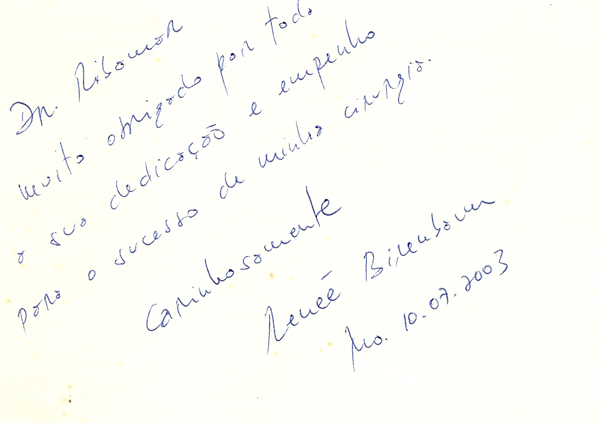 Dr. Ribamar
muito obrigado por toda
a sua dedicação e empenho
para o sucesso de minha cirurgia.
Carinhosamente
Reneé Birenbaum
10.07.2003